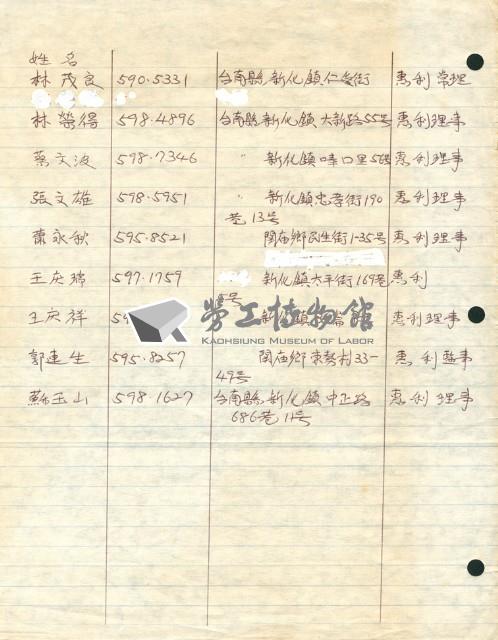 姓名
林茂良 590.5331 台南縣新化鎮仁愛街 惠利常理
林榮得 598.4896 台南縣新化鎮大新路55号 惠利理事
蔡文波 598.7346 〃 新化鎮 口里56号 惠利理事
張文雄 598.5951 〃 新化鎮忠孝街190 惠利理事
巷13号
蕭永秋 595.8521 関庙鄉民生街1-35号 惠利理事
王庆瑞 597.1759 新化鎮太平街169巷 惠利
号
王庆祥 59 新化鎮 惠利理事
勞工博物館
KAOHSIUNG MUSEUM OF LABOR
郭連生 595.8257 関庙鄉東勢村33- 惠利監事
49号
蘇玉山 598.1627 台南縣新化鎮中正路 惠利理事
686巷11号